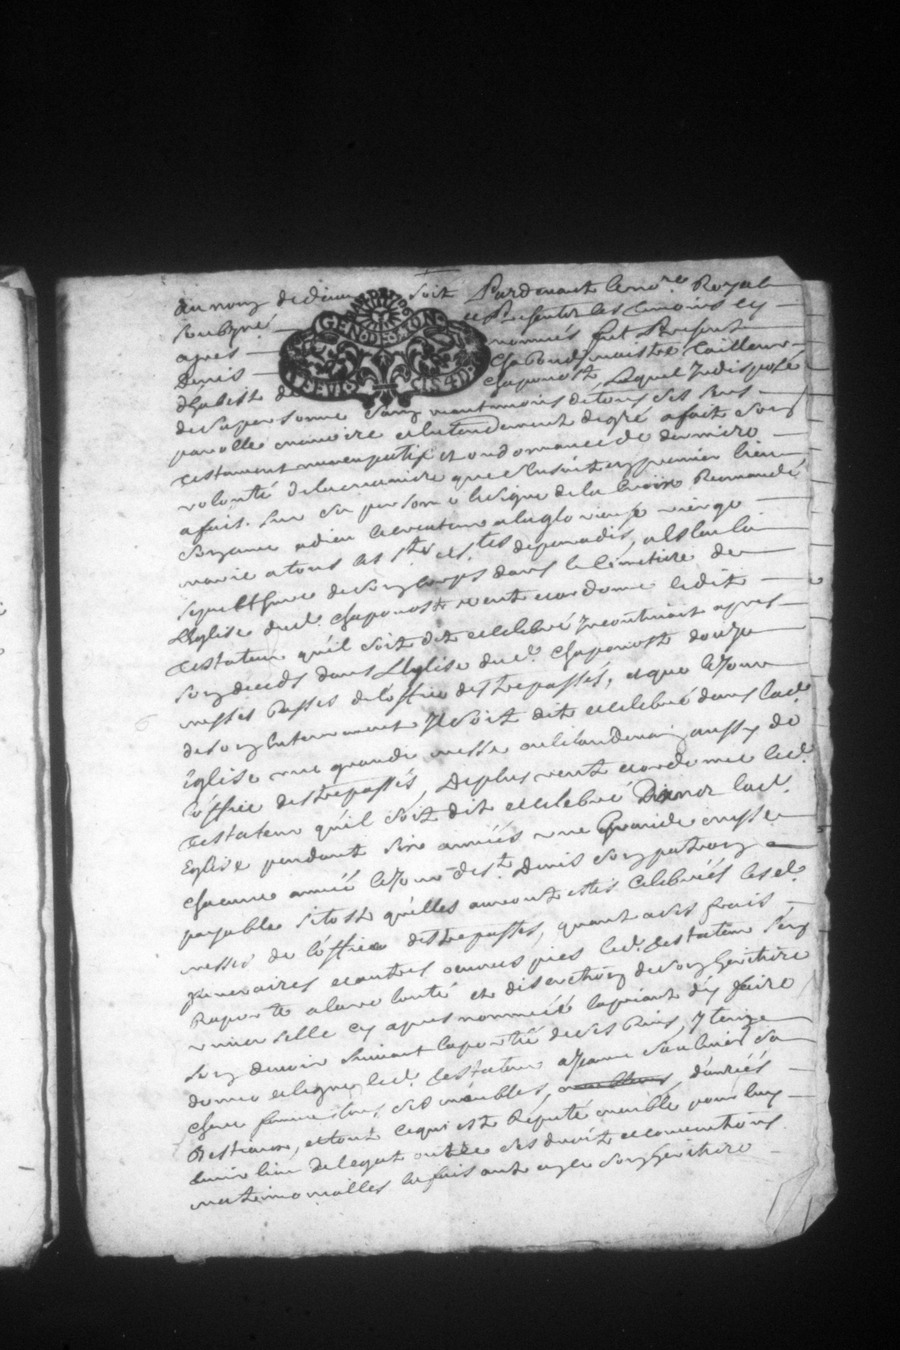 Au nom de dieu soit Pardevant le nore Royal
GEN·DE·LYON·
Soubzné et Presents les temoins cy
apres nommés fut Present
Denis Chaboud maistre tailleur
d'habist de Chaponost, Lequel Indisposé
de sa personne sans neantmoins de tous ses sens
parolle memoire et entendement de gré a fait son
testament nuncupatif et ordonnance de derniere
volonté de la maniere que s'ensuit en premier lieu
a fait sur sa personne le signe de la Croix Recmandé
son ame a dieu le createur a la glorieuse vierge
marie a tous les sts et stes de paradis, a eslu la
sepulthure de son corps dans le cimetiere de
L'Eglise dud. Chaponost veut et ordonne ledit
testateur qu'il soit dit et celebré Incontinant apres
son deceds dans L'Eglise dud. Chaponost douze
messes Basses de l'office des trepassés, et que le Jour
de son enterrement Il soit dit et celebré dans lad.
Eglise une grande messe et le landemain aussy de
l'office des trepassés, De plus veut et ordonne led.
testateur qu'il soit dit et celebré dans lad.
Eglise pendant six années une Grande messe
chacune année le Jour de st. Denis son patron
payable sitost qu'elles auront estés Celebrées lesd.
messes de l'office des trepassés, quant a ses frais
funeraires et autres oeuvres pies led. testateur s'en
Raporte a la volonté et discretion de son heritiere
universelle cy apres nommée la priant d'en faire
son devoir suivant la portée de ses Biens, Item
donne et legue led. testateur a Jeanne Saulnier sa
chere femme tous ses meubles, danrées
Bestiaux, et tout ce qui est Reputé meuble pour luy
tenir lieu de legat outre ses droits et conventions
matrimonialles la faisant en ce son heritiere